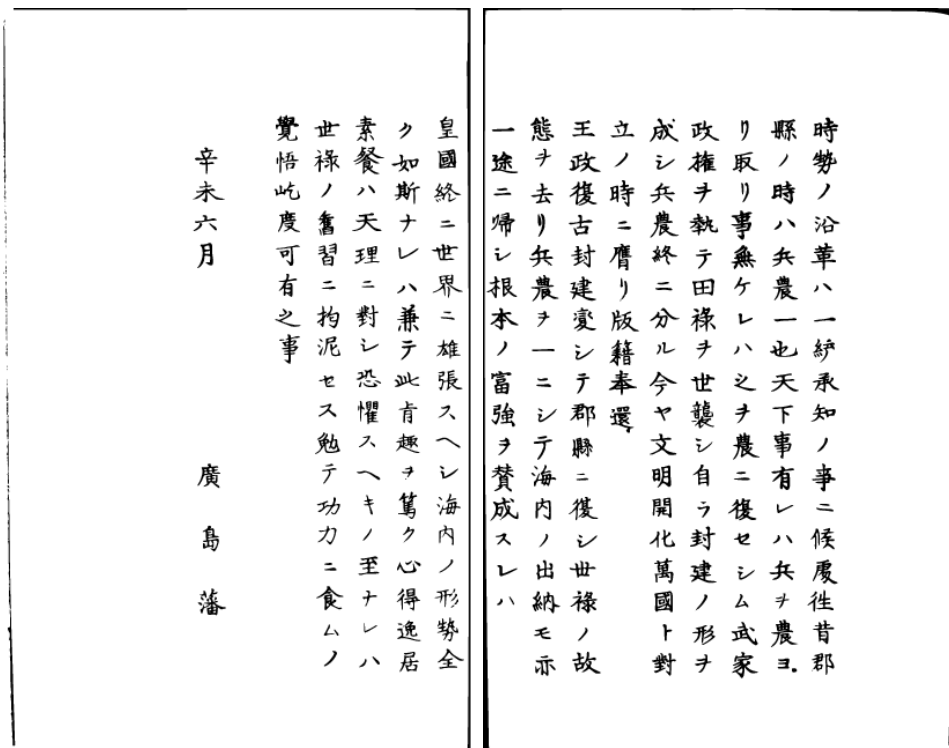 時勢ノ沿革ハ一統承知ノ事ニ候處徃昔郡
縣ノ時ハ兵農一也天下事有レハ兵ヲ農ヨ
リ取リ事無ケレハ之ヲ農ニ復セシム武家
政權ヲ執テ田祿ヲ世襲シ自ラ封建ノ形ヲ
成シ兵農終ニ分ル今ヤ文明開化萬國ト對
立ノ時ニ膺リ版籍奉還
王政復古封建変シテ郡縣ニ復シ世祿ノ故
態ヲ去リ兵農ヲ一ニシテ海内ノ出納モ亦
一途ニ帰シ根本ノ富強ヲ賛成スレハ
皇國終ニ世界ニ雄張スヘシ海内ノ形勢全
ク如斯ナレハ兼テ此旨趣ヲ篤ク心得逸居
素餐ハ天理ニ對シ恐懼スヘキノ至ナレハ
世祿ノ舊習ニ拘泥セス勉テ功力ニ食ムノ
覺悟屹度可有之事
辛未六月
廣島藩